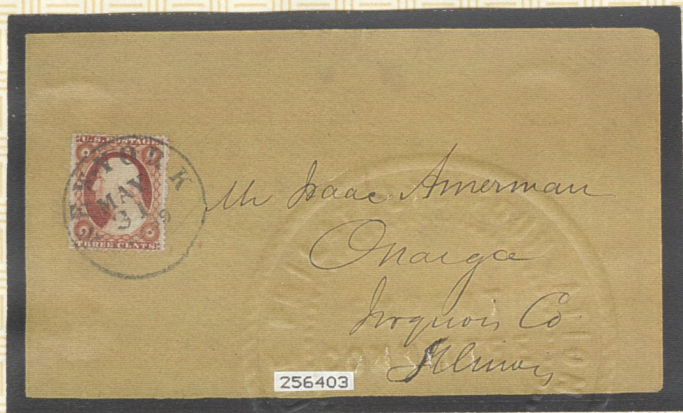 U.S. POSTAGE
THREE CENTS
NEW YORK
MAY
31
Mr Isaac Amerman
Onarga
Iroquois Co
Illinois
256403